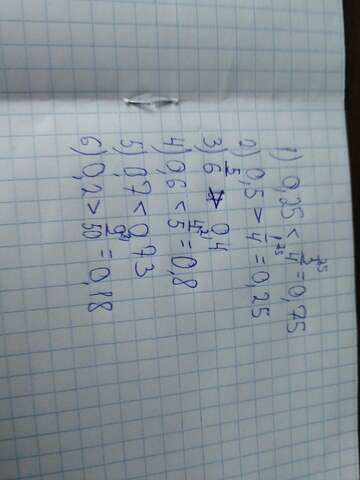 1) 0,25 < 3/4 = 0,75
2) 0,5 > 1/4 = 0,25
3) 5/6 > 0,4
4) 0,6 < 4/5 = 0,8
5) 0,7 < 0,73
6) 0,2 > 9/50 = 0,18